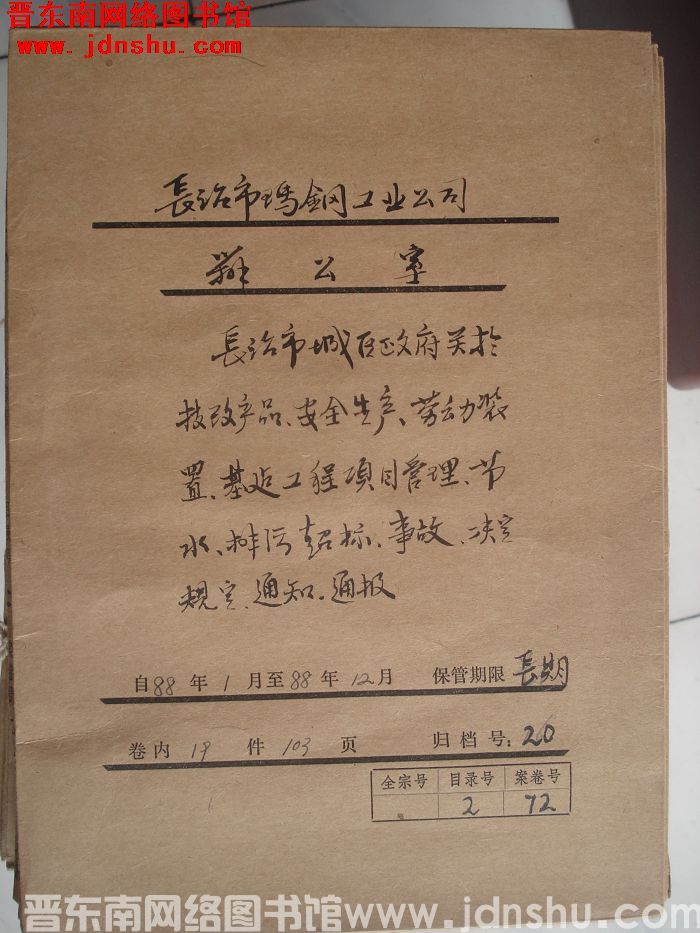 晋东南网络图书馆
www.jdnshu.com
長治市瑪鋼工业公司
辦公室
長治市城区政府关於
技改产品、安全生产、劳动裝
置、基边工程項目管理、节
水、排污超标、事故、决定
規定、通知、通报
自88年1月至88年12月 保管期限 長期
卷内 19 件 103 页 归档号:26
全宗号 目录号 案卷号
2 72
晋东南网络图书馆www.jdnshu.com